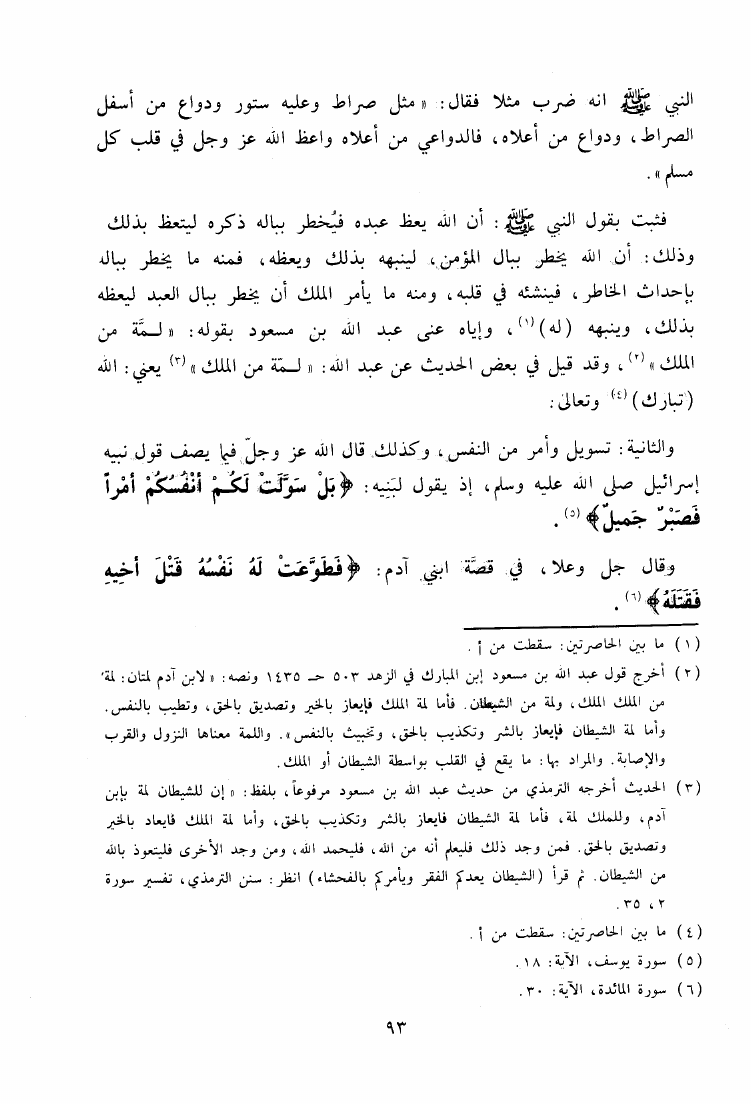 النبي ﷺ انه ضرب مثلا فقال: « مثل صراط وعليه ستور ودواع من أسفل
الصراط، ودواع من أعلاه، فالدواعي من أعلاه واعظ الله عز وجل في قلب كل
مسلم ».
فثبت بقول النبي ﷺ: أن الله يعظ عبده فيُخطر بباله ذكره ليتعظ بذلك
وذلك: أن الله يخطر ببال المؤمن، لينبهه بذلك ويعظه، فمنه ما يخطر بباله
بإحداث الخاطر، فينشئه في قلبه، ومنه ما يأمر الملك أن يخطر ببال العبد ليعظه
بذلك، وينبهه (له)(١)، وإياه عنى عبد الله بن مسعود بقوله: « لـمَّة من
الملك »(٢)، وقد قيل في بعض الحديث عن عبد الله: « لـمّة من الملك »(٣) يعني: الله
(تبارك)(٤) وتعالى:
والثانية: تسويل وأمر من النفس، وكذلك قال الله عز وجلّ فيما يصف قول نبيه
إسرائيل صلى الله عليه وسلم، إذ يقول لبَنِيه: ﴿بَلْ سَوَّلَتْ لَكُمْ أنْفُسُكُمْ أمْراً
فَصَبْرٌ جَميلٌ﴾(٥).
وقال جل وعلا، في قصَّة ابني آدم: ﴿فَطَوَّعَتْ لَهُ نَفْسُهُ قَتْلَ أخِيهِ
فَقَتَلَهُ﴾(٦).
(١) ما بين الحاصرتين: سقطت من أ.
(٢) أخرج قول عبد الله بن مسعود إبن المبارك في الزهد ٥٠٣ حـ ١٤٣٥ ونصه: « لابن آدم لمتان: لمة
من الملك الملك، ولمة من الشيطان. فأما لمة الملك فإيعاز بالخير وتصديق بالحق، وتطيب بالنفس.
وأما لمة الشيطان فإيعاز بالشر وتكذيب بالحق، وتخبيث بالنفس ». واللمة معناها النزول والقرب
والإصابة. والمراد بها: ما يقع في القلب بواسطة الشيطان أو الملك.
(٣) الحديث أخرجه الترمذي من حديث عبد الله بن مسعود مرفوعاً، بلفظ: « إن للشيطان لمة بإبن
آدم، وللملك لمة، فأما لمة الشيطان فايعاز بالشر وتكذيب بالحق، وأما لمة الملك فايعاد بالخير
وتصديق بالحق. فمن وجد ذلك فليعلم أنه من الله، فليحمد الله، ومن وجد الأخرى فليتعوذ بالله
من الشيطان. ثم قرأ (الشيطان يعدكم الفقر ويأمركم بالفحشاء) انظر: سنن الترمذي، تفسير سورة
٢، ٣٥.
(٤) ما بين الحاصرتين: سقطت من أ.
(٥) سورة يوسف، الآية: ١٨.
(٦) سورة المائدة، الآية: ٣٠.
٩٣